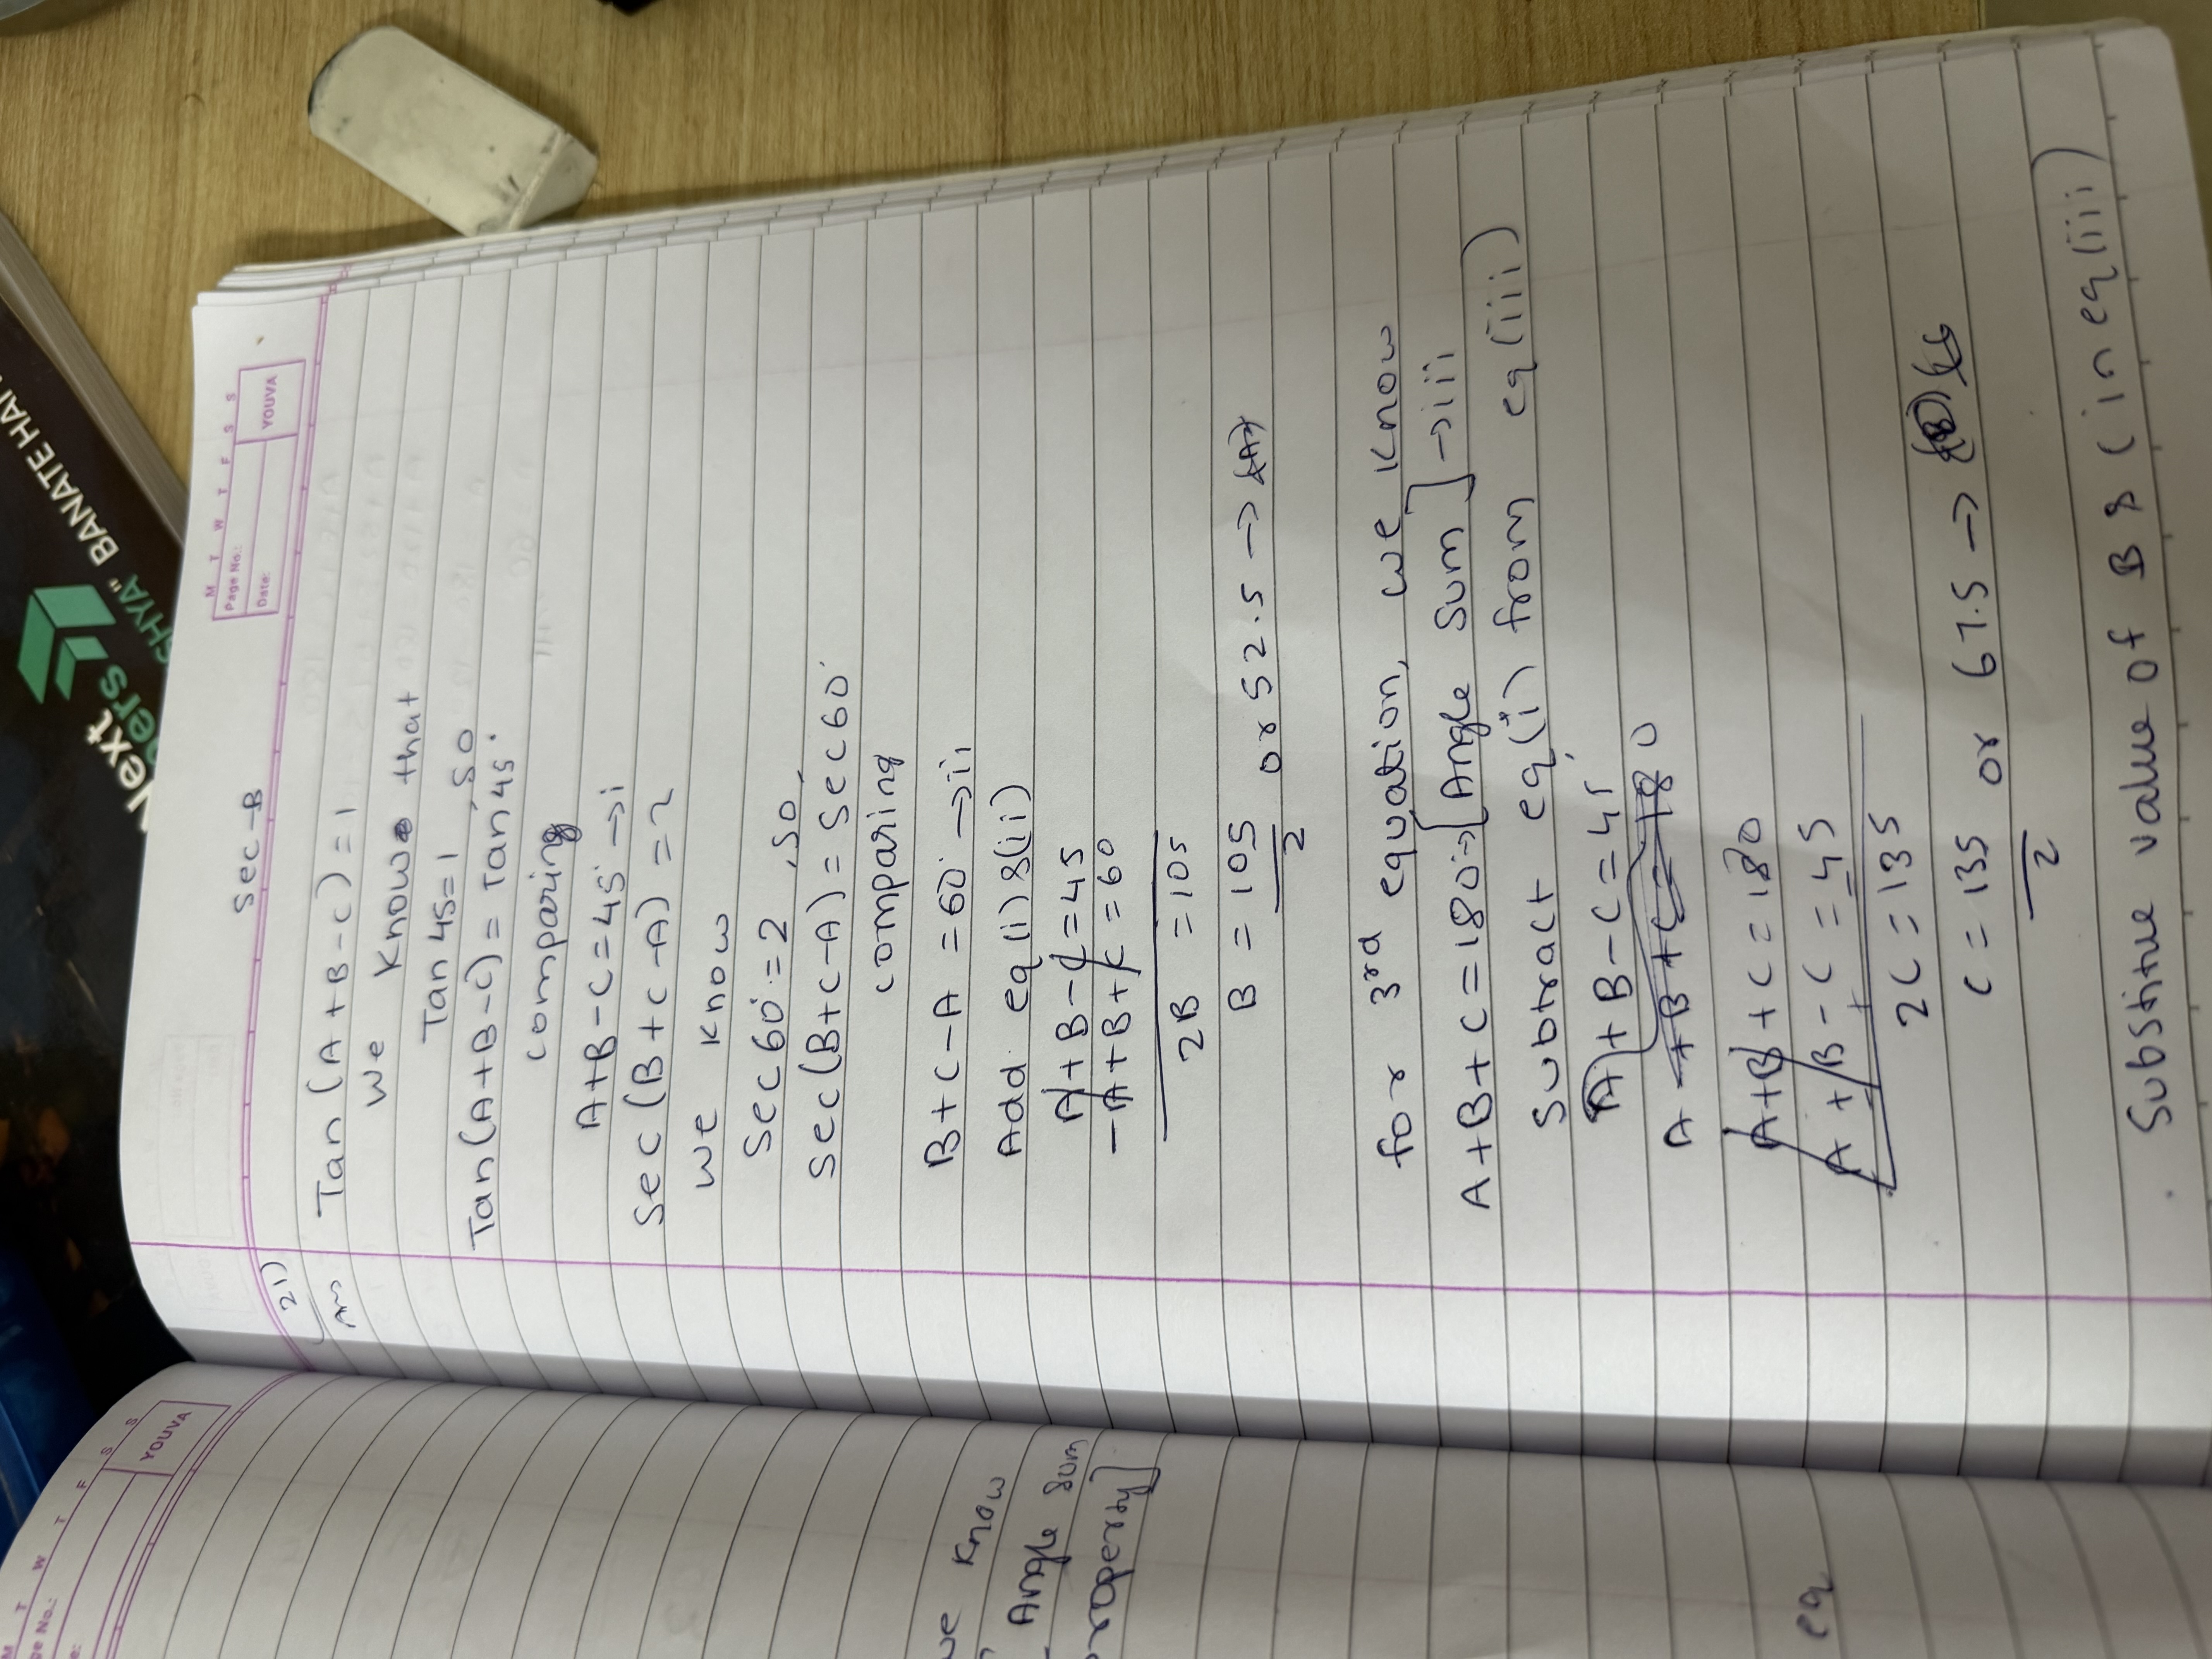 Next
BANATE HAI
M T W T F S S
Page No.:
Date:
YOUVA
Sec-B
21)
Ans
Tan(A+B-C)=1
we Know that
Tan 45=1, so
Tan(A+B-C)= Tan 45°
comparing
A+B-C=45° →i
Sec(B+C-A)=2
we know
Sec 60°=2, so,
Sec(B+C-A)=Sec60°
comparing
B+C-A=60° →ii
Add eq(i)&(ii)
A+B-C=45
-A+B+C=60
2B=105
B=105/2 or 52.5→
for 3rd equation, we know
A+B+C=180→[Angle Sum]→iii
Subtract eq(i) from eq(iii)
A+B-C=45
A+B+C=180
A+B+C=180
A+B-C=45
2C=135
C=135/2 or 67.5→
Substitue value of B & C in eq(iii)
M T W T F S S
YOUVA
Know
Angle Sum
eq